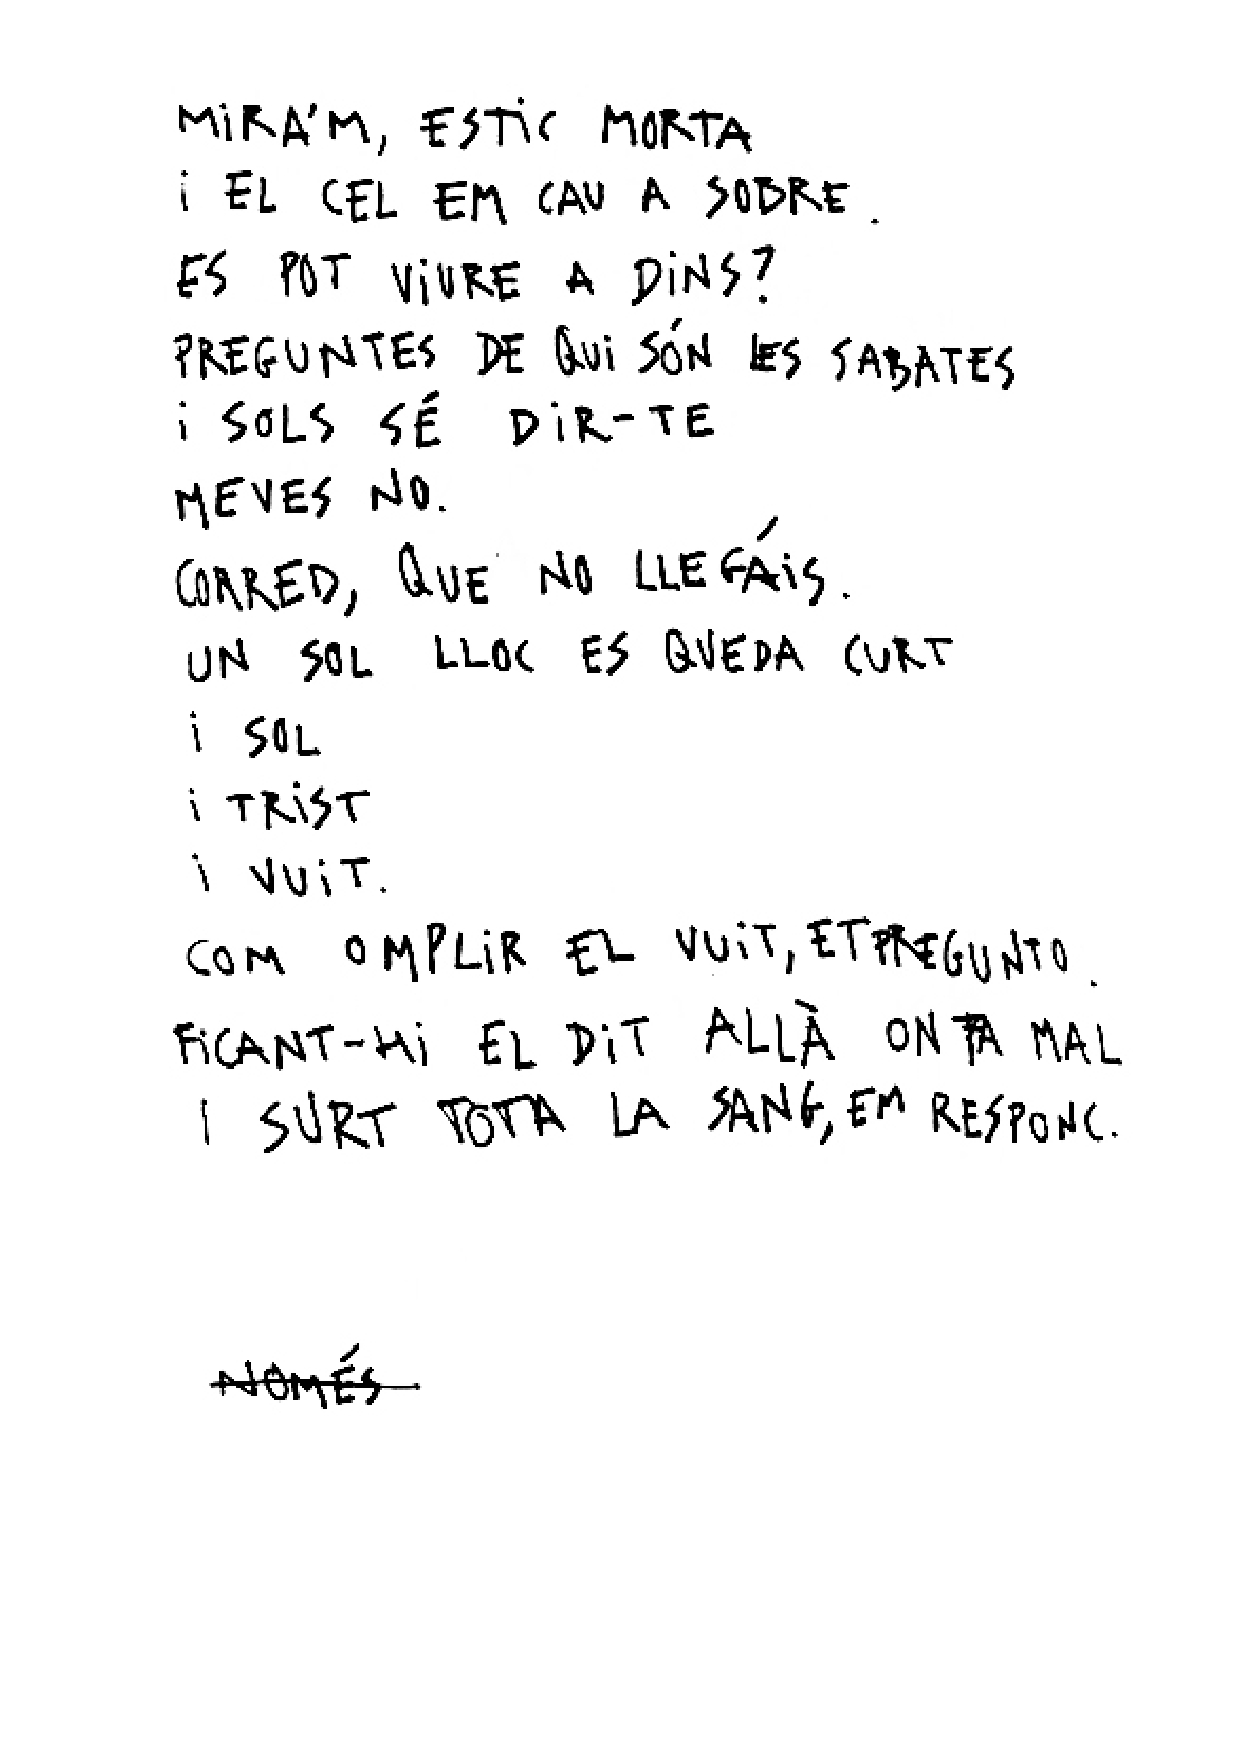 MiRA'M, ESTiC MORTA
i EL CEL EM CAU A SOBRE.
ES POT ViURE A DiNS?
PREGUNTES DE QUi SÓN LES SABATES
i SOLS SÉ DiR-TE
MEVES NO.
CORRED, QUE NO LLEGÁiS.
UN SOL LLOC ES QUEDA CURT
i SOL
i TRiST
i VUiT.
COM OMPLiR EL VUiT, ET PREGUNTO.
FiCANT-Hi EL DiT ALLÀ ON FA MAL
I SURT TOTA LA SANG, EM RESPONC.
NOMÉS